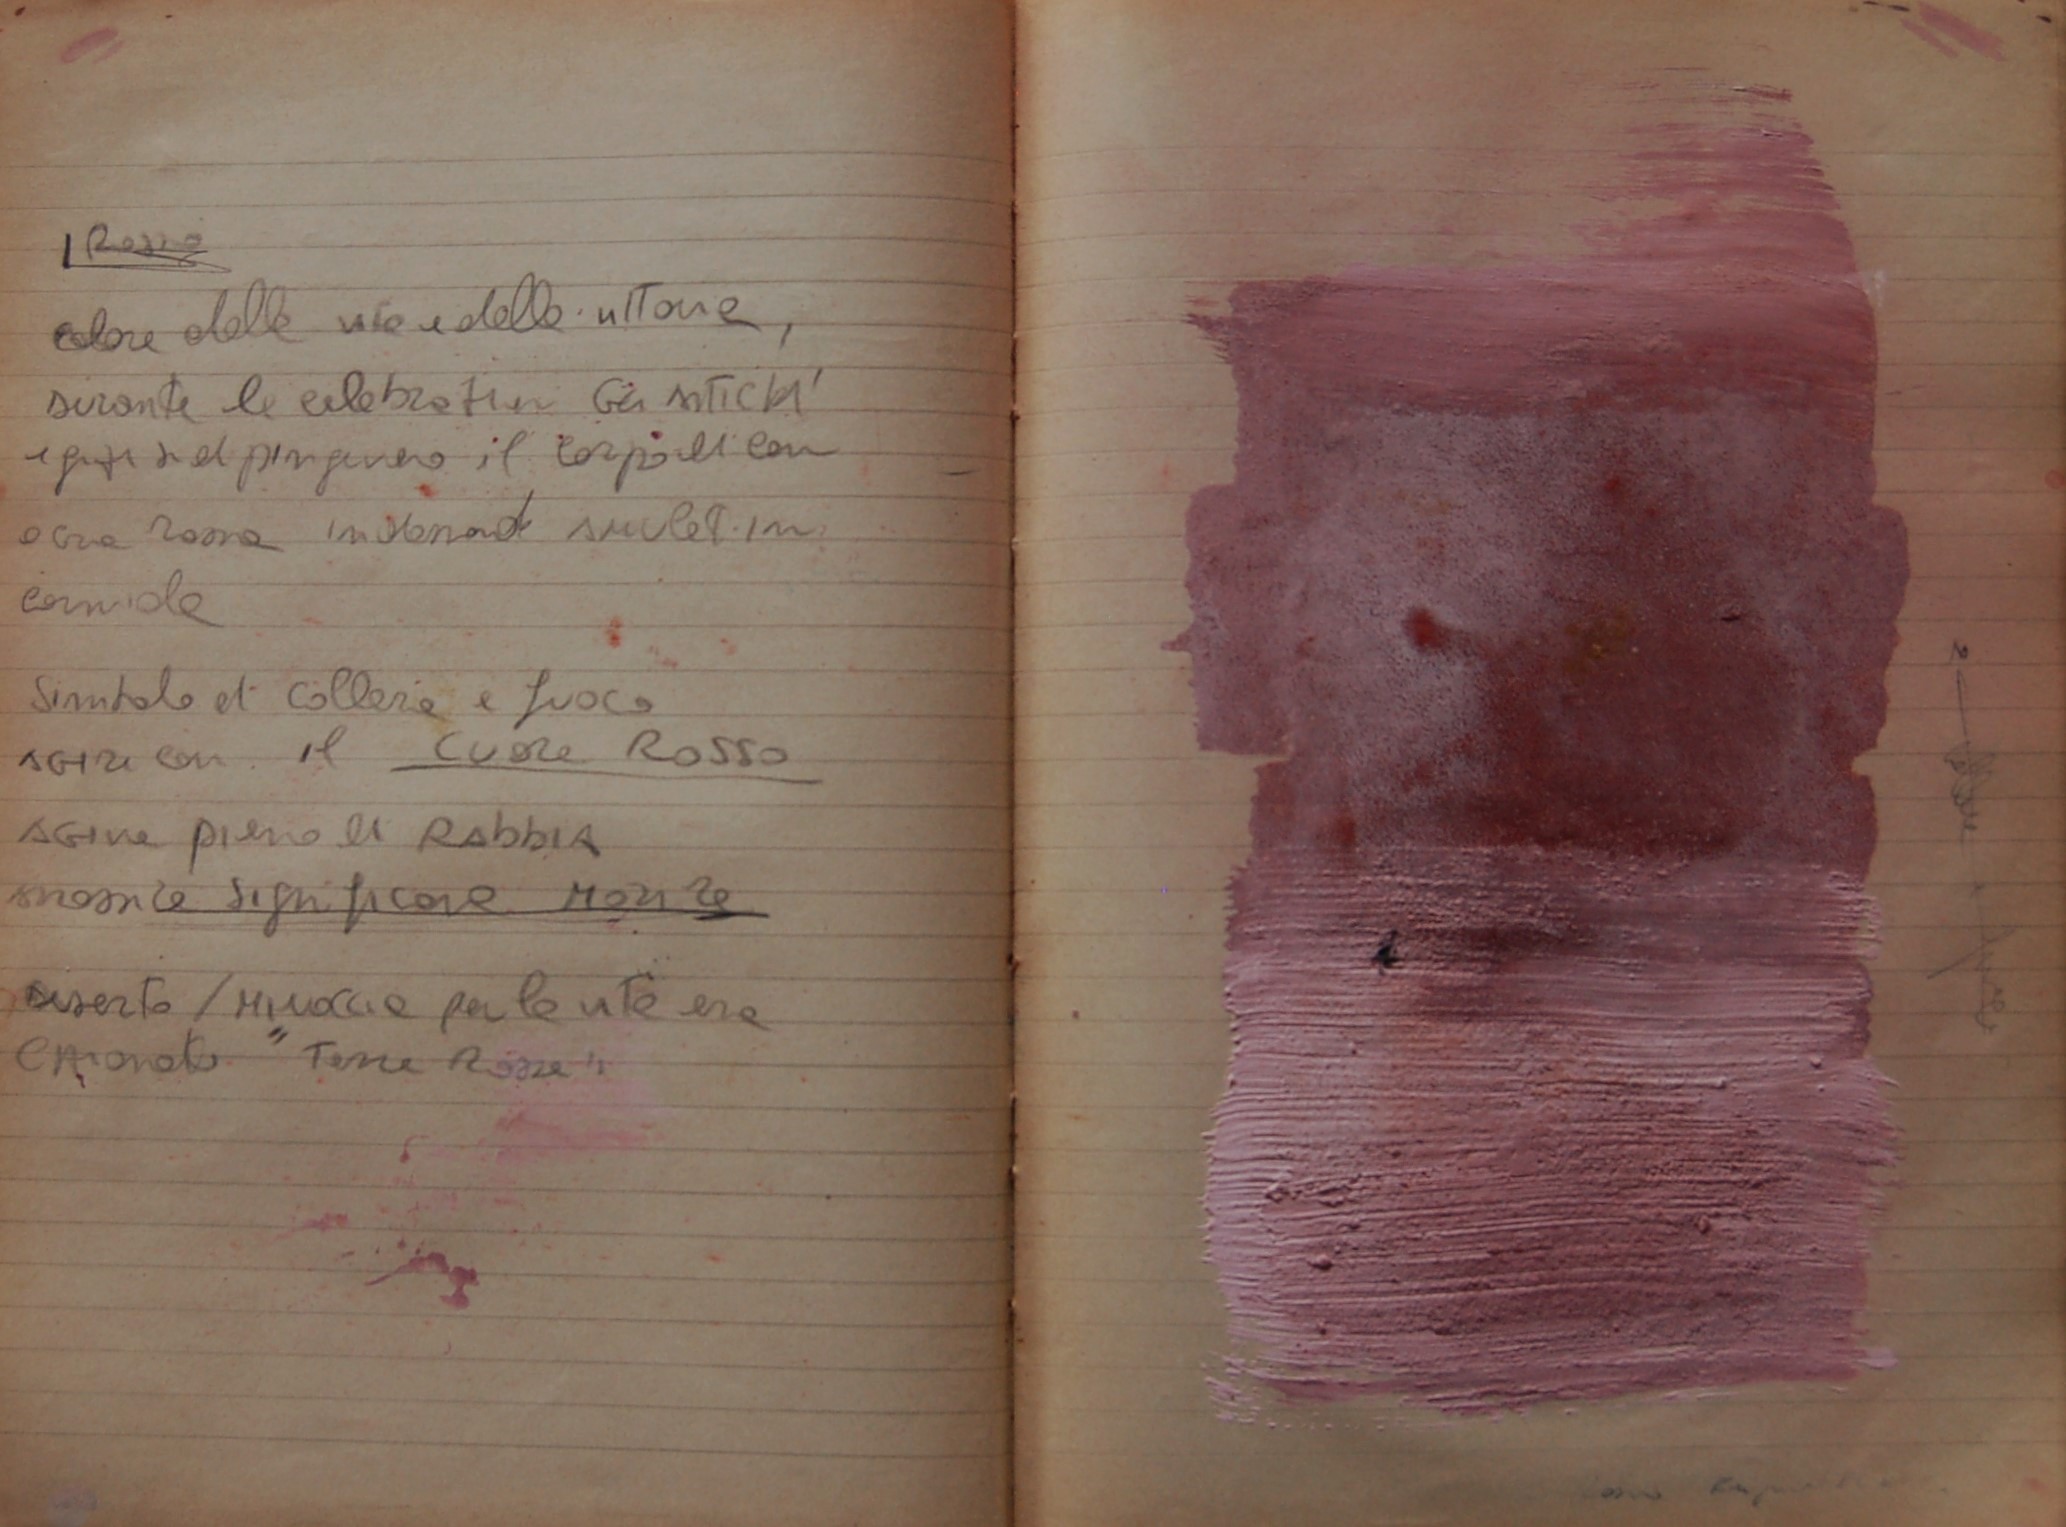 Rosso
colore della vita e della vittoria,
durante le celebrazioni Gli antichi
egizi si dipingevano il corpo di con
ocra rossa indossando amuleti in
corniola
Simbolo di collera e fuoco
agire con il CUORE ROSSO
agire pieno di RABBIA
arrossire significava MORIRE
deserto / Minaccia per la vita era
CHIAMATO "Terra Rossa"